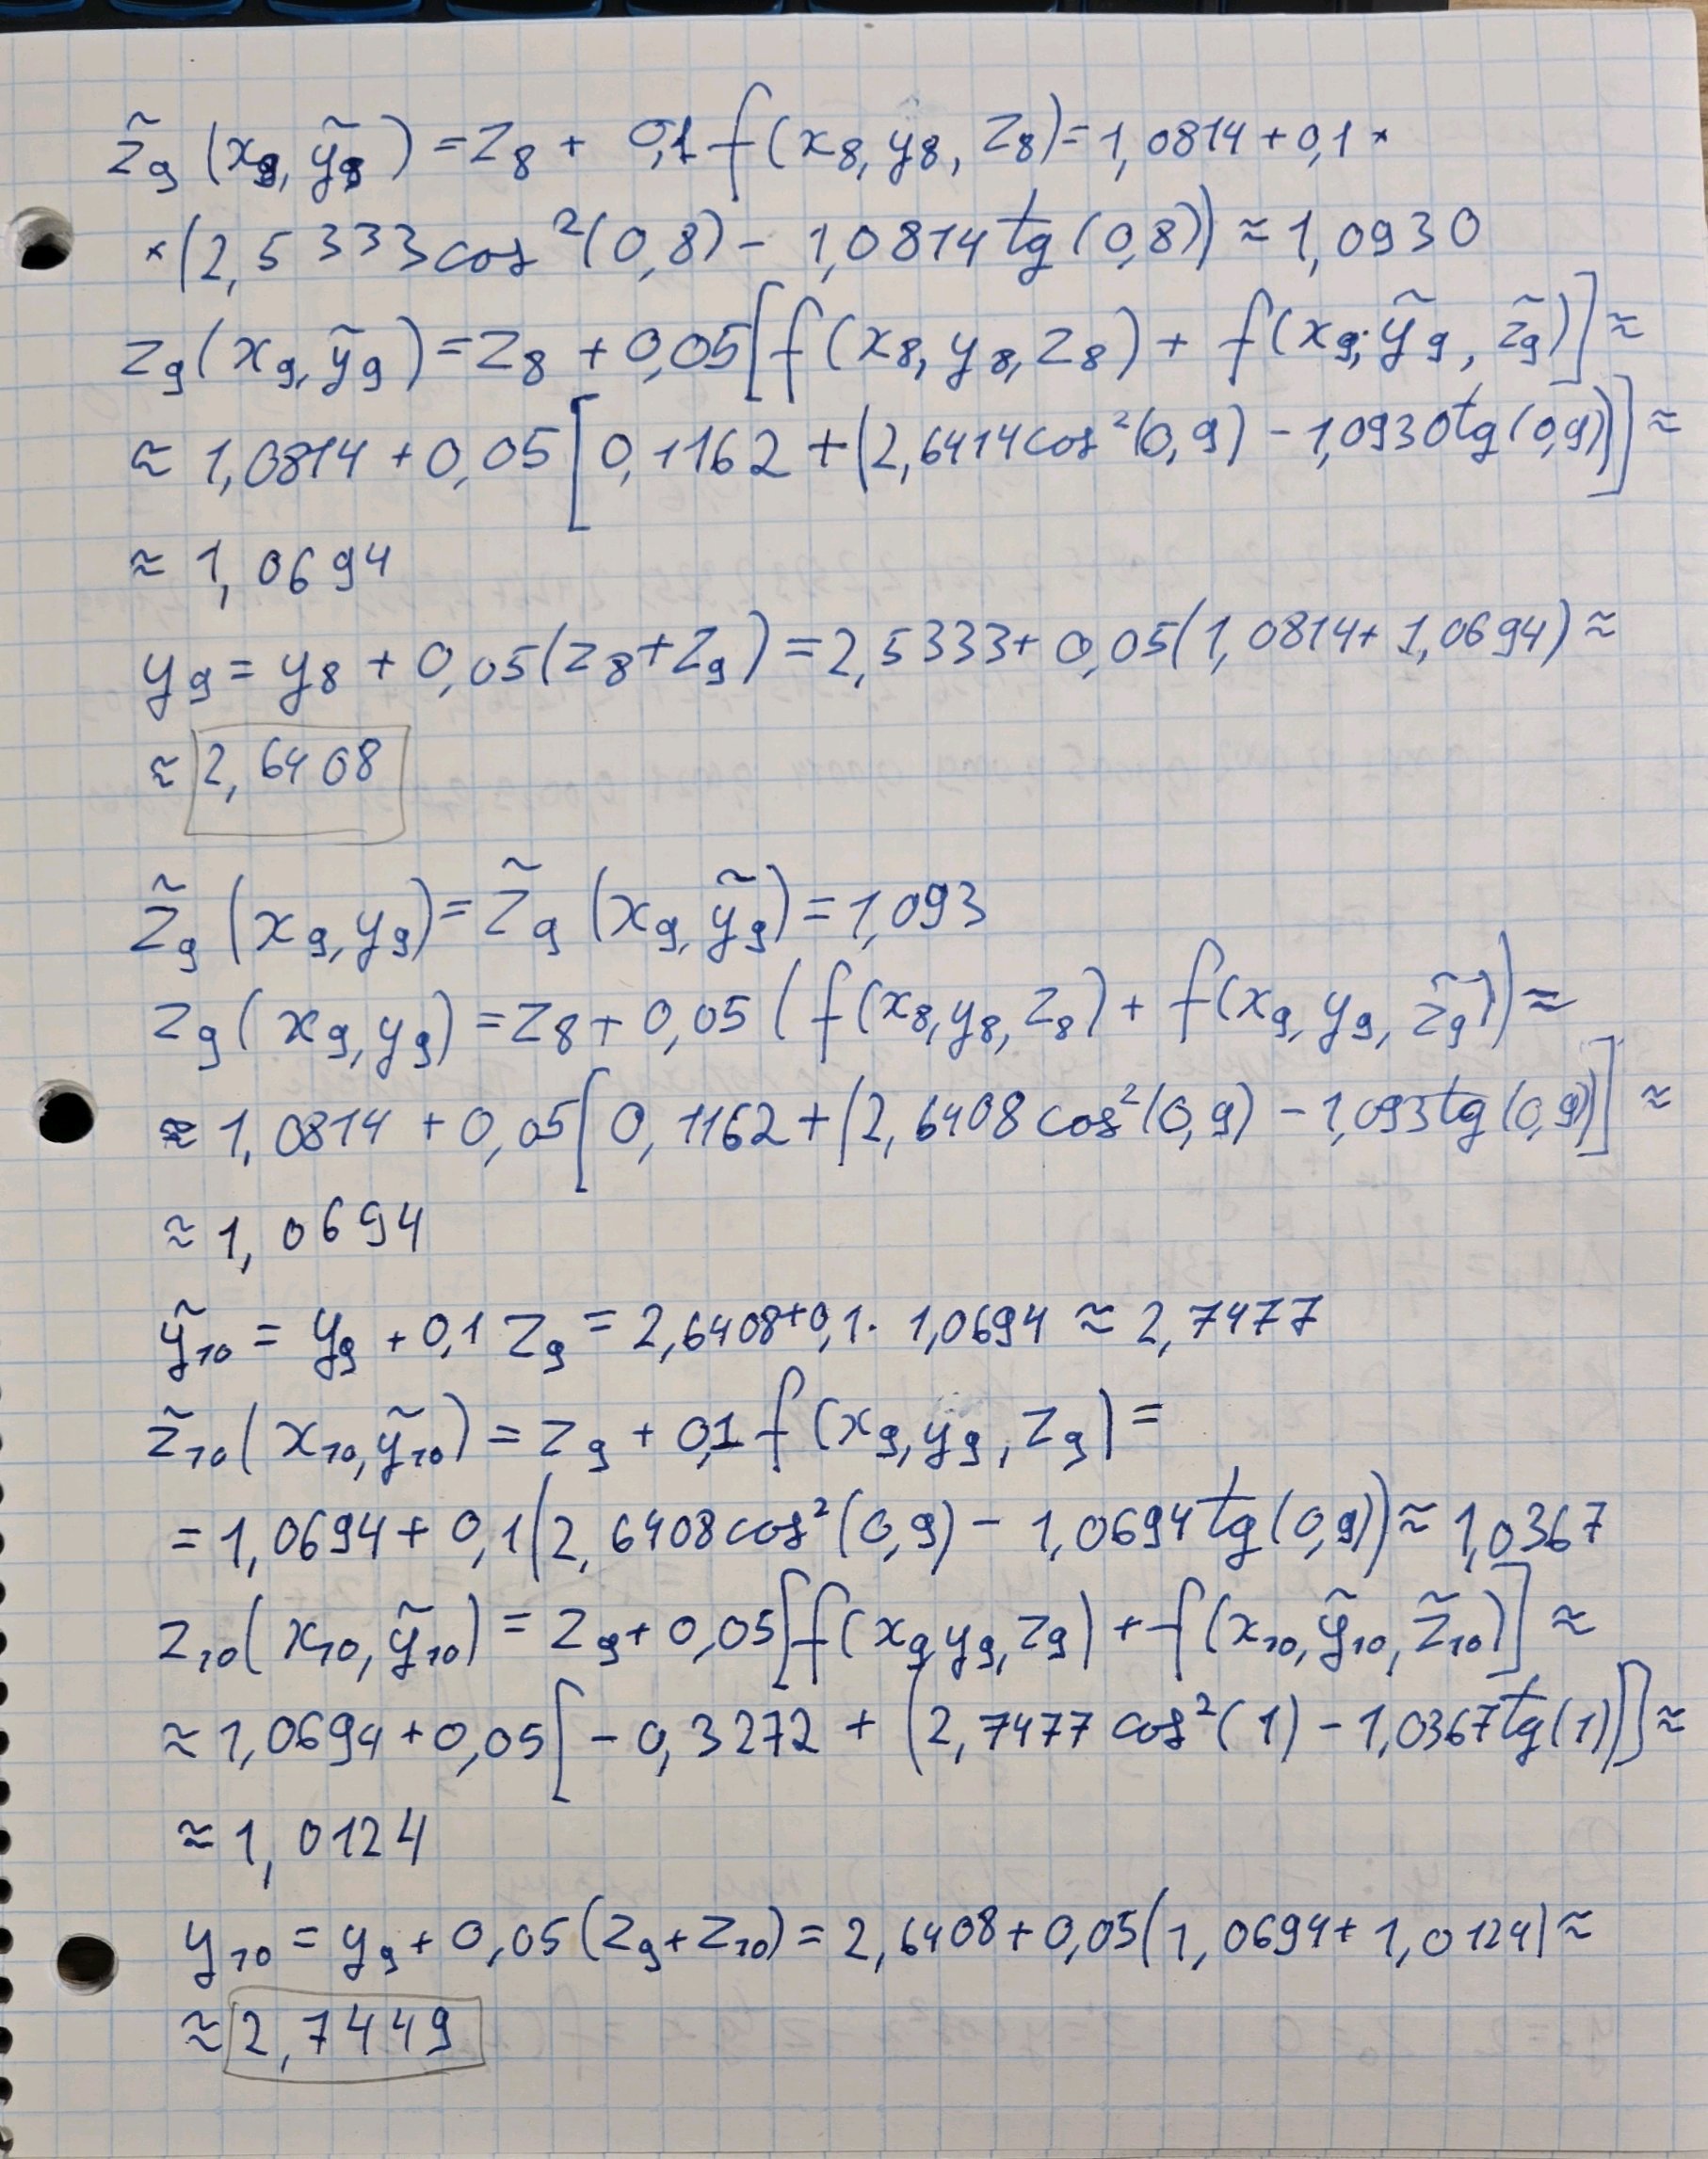 z̃₉(x₉, ỹ₉) = z₈ + 0,1 f(x₈, y₈, z₈) = 1,0814 + 0,1 ×
× (2,5333 cos²(0,8) − 1,0814 tg(0,8)) ≈ 1,0930
z₉(x₉, ỹ₉) = z₈ + 0,05 [f(x₈, y₈, z₈) + f(x₉, ỹ₉, z̃₉)] ≈
≈ 1,0814 + 0,05 [0,1162 + (2,6414 cos²(0,9) − 1,0930 tg(0,9))] ≈
≈ 1,0694
y₉ = y₈ + 0,05(z₈ + z₉) = 2,5333 + 0,05(1,0814 + 1,0694) ≈
≈ 2,6408
z̃₉(x₉, y₉) = z̃₉(x₉, ỹ₉) = 1,093
z₉(x₉, y₉) = z₈ + 0,05 (f(x₈, y₈, z₈) + f(x₉, y₉, z̃₉)) ≈
≈ 1,0814 + 0,05 [0,1162 + (2,6408 cos²(0,9) − 1,093 tg(0,9)] ≈
≈ 1,0694
ỹ₁₀ = y₉ + 0,1 z₉ = 2,6408 + 0,1 · 1,0694 ≈ 2,7477
z̃₁₀(x₁₀, ỹ₁₀) = z₉ + 0,1 f(x₉, y₉, z₉) =
= 1,0694 + 0,1(2,6408 cos²(0,9) − 1,0694 tg(0,9)) ≈ 1,0367
z₁₀(x₁₀, ỹ₁₀) = z₉ + 0,05 [f(x₉, y₉, z₉) + f(x₁₀, ỹ₁₀, z̃₁₀)] ≈
≈ 1,0694 + 0,05 [− 0,3272 + (2,7477 cos²(1) − 1,0367 tg(1))] ≈
≈ 1,0124
y₁₀ = y₉ + 0,05(z₉ + z₁₀) = 2,6408 + 0,05(1,0694 + 1,0124) ≈
≈ 2,7449